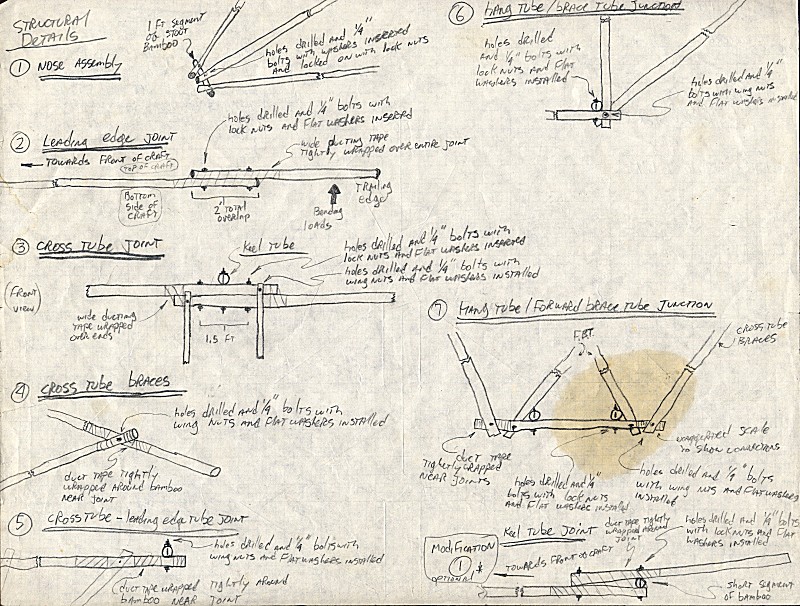 STRUCTURAL
DETAILS
① NOSE ASSEMBLY
1 FT SEGMENT
OF STOUT
BAMBOO
holes drilled and ¼"
bolts with washers inserted
and locked on with lock nuts
② LEADING EDGE JOINT
TOWARDS FRONT OF CRAFT
TOP OF CRAFT
BOTTOM
SIDE OF
CRAFT
holes drilled and ¼" bolts with
lock nuts and flat washers inserted
wide ducting tape
tightly wrapped over entire joint
2' TOTAL
OVERLAP
Bending
LOADS
TRAILING
edge
③ CROSS TUBE JOINT
FRONT
VIEW
Keel TUBE
holes drilled and ¼" bolts with
lock nuts and flat washers inserted
holes drilled and ¼" bolts with
wing nuts and flat washers installed
wide ducting
tape wrapped
over ends
1.5 FT
④ CROSS TUBE BRACES
holes drilled and ¼" bolts with
wing nuts and flat washers installed
duct tape tightly
wrapped around bamboo
near joint
⑤ CROSSTUBE - leading edge TUBE JOINT
holes drilled and ¼" bolts with
wing nuts and flat washers installed
duct tape wrapped tightly around
bamboo near joint
⑥ HANG TUBE / BRACE TUBE JUNCTION
holes drilled
and ¼" bolts with
lock nuts and flat
washers installed
holes drilled and ¼"
bolts with wing nuts
and flat washers installed
⑦ HANG TUBE / FORWARD BRACE TUBE JUNCTION
F.B.T.
CROSS TUBE
BRACES
duct tape
tightly wrapped
near joints
holes drilled and ¼"
bolts with lock nuts
and flat washers
installed
SCALE
TO SHOW CONNECTIONS
holes drilled and ¼" bolts
with wing nuts and flat washers
installed
MODIFICATION
①
OPTIONAL
Keel TUBE JOINT
TOWARDS FRONT OF CRAFT
duct tape tightly
wrapped around
joint
holes drilled and ¼" bolts
with lock nuts and flat
washers installed
short segment
of bamboo